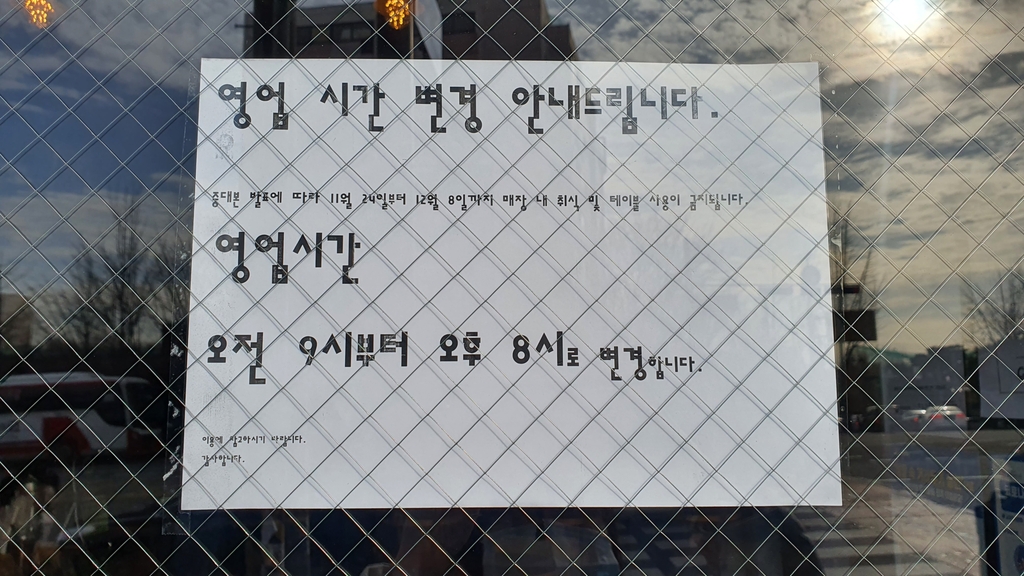 영업 시간 변경 안내드립니다.
중대본 발표에 따라 11월 24일부터 12월 8일까지 매장 내 취식 및 테이블 사용이 금지됩니다.
영업시간
오전 9시부터 오후 8시로 변경합니다.
이용에 참고하시기 바랍니다.
감사합니다.